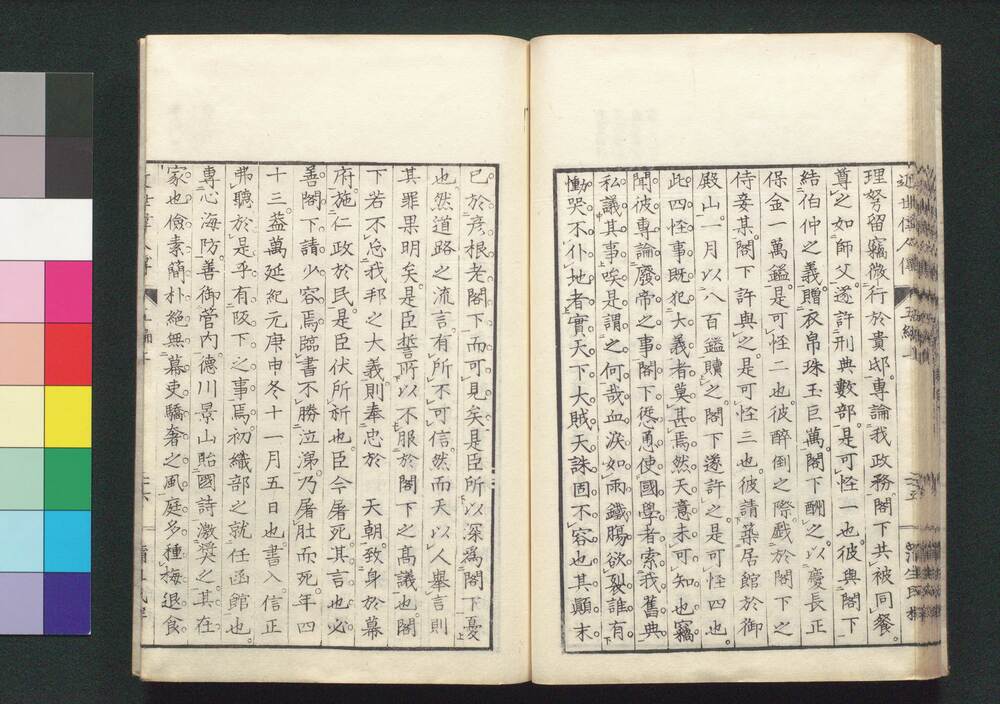 近世偉人傳
理努留竊微行於貴邸專論我政務閣下共被同餐
尊之如師父遂許刑典數部是可怪一也彼與閣下
結伯仲之義贈衣帛珠玉巨萬閣下酬之以慶長正
保金一萬鎰是可怪二也彼醉倒之際戲於閣下之
侍妾某閣下許與之是可怪三也彼請築居館於御
殿山一月以八百鎰贖之閣下遂許之是可怪四也
此四怪事既犯大義者莫甚焉然天意未可知也竊
聞彼專論廢帝之事閣下慫慂使國學者索我舊典
私議其事唉是謂之何哉血淚如雨鐵腸欲裂誰有
慟哭不仆地者實天下大賊天誅固不容也其顚末
已於彥根老閣下而可見矣是臣所以深爲閣下憂
也然道路之流言有所不可信然而天以人舉言則
其罪果明矣是臣誓所以不服於閣下之高議也閣
下若不忘我邦之大義則奉忠於 天朝致身於幕
府施仁政於民是臣伏所祈也臣今屠死其言也必
善閣下請少容焉臨書不勝泣涕乃屠肚而死年四
十三蓋萬延紀元庚申冬十一月五日也書入信正
弗聽於是乎有阪下之事焉初織部之就任函館也
專心海防善御營內德川景山貽國詩激奬之其在
家也儉素簡朴絕無幕吏驕奢之風庭多種梅退食